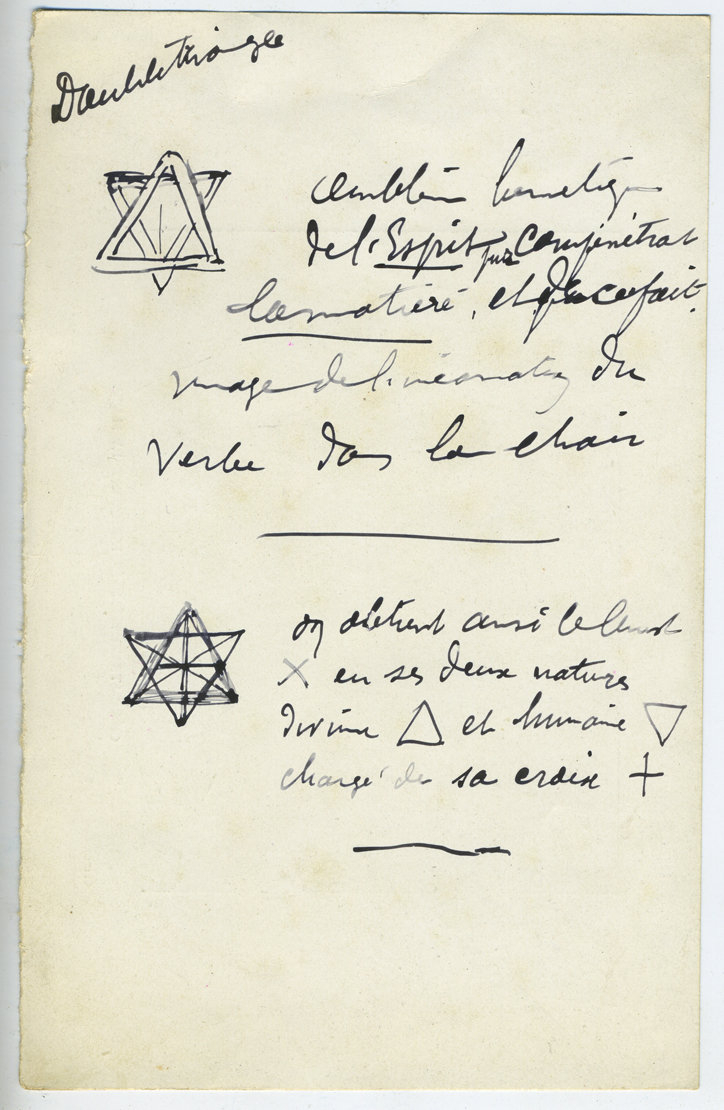 Double triangle
emblème hermétique
de l'Esprit pur compénétrant
la matière, et de ce fait
image de l'incarnation du
Verbe dans la chair
on obtient ainsi le
X en ses deux natures
divine △ et humaine ▽
chargé de sa croix +